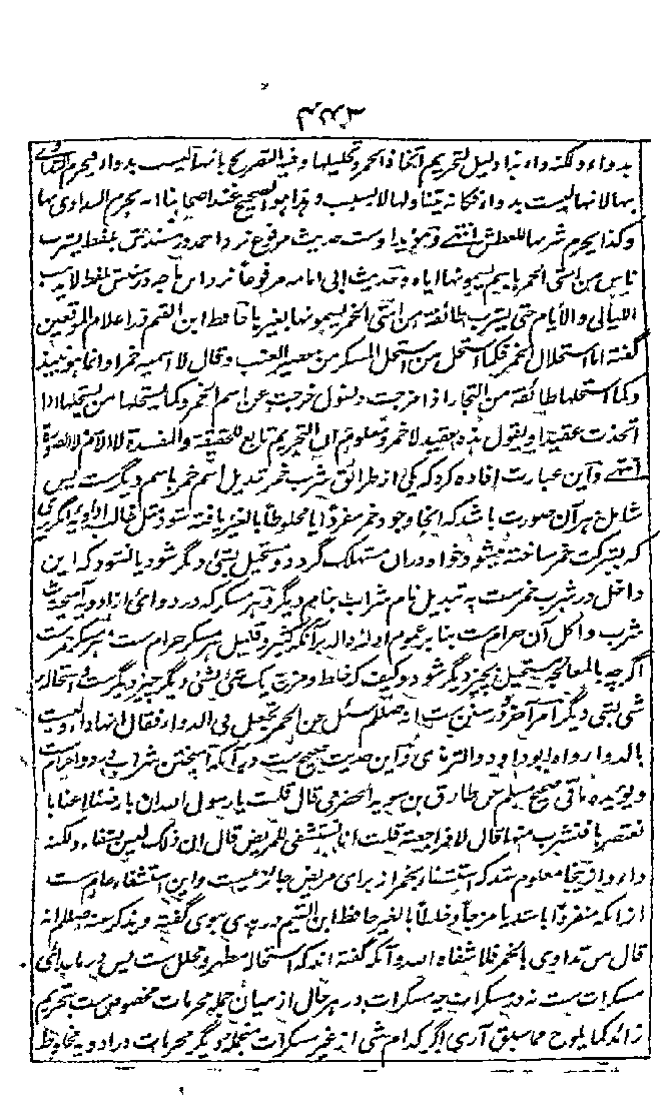 بدواء ولكنه داء نذا دليل لتحريم اتخاذ الخمر وتخليلها وفيه التصريح بانها ليست بدواء فيحرم التداوى
بها لانها ليست بدواء فكانه يتناولها لا لسبب وهذا هو الصحيح عند اصحابنا انه يحرم التداوى بها
وكذا يحرم شربها للعطش انتهے ومؤيد اوست حديث مرفوع نزد احمد در مسندش بلفظ يشرب
ناس من امتى الخمر باسم يسمونها اياه وحديث ابى امامه مرفوعا نزد ابن ماجه در سنش بلفظ لا يذهب
الليالى والايام حتى يشرب طائفة من امتى الخمر يسمونها بغير اسمها حافظ ابن القيم در اعلام الموقعين
گفته اما استحلال الخمر فكما استحل من استحل المسكر من عصير العنب وقال لا اسميه خمرا وانما هو نبيذ
وكما استحلها طائفة من التجار اذا مزجت ويقول خرجت عن اسم الخمر وكما يستحلها من يستحلها اذا
اتخذت عقيدا ويقول هذه عقيد لا خمر ومعلوم ان التحريم تابع للحقيقة والمفسدة لا للاسم والصورة
انتهے واين عبارت افاده كرد كه يكى از طرائق شرب خمر تبديل اسم خمر باسم ديگرست پس
شامل هر آن صورت باشد كه انجا وجود خمر مفردا يا مخلوطا بالغير يافته شود مثل غالب ادويه انگريزى
كه بشركت خمر ساخته ميشود خواه دران مستهلك گردد و مستحيل بشئ ديگر شود يا نشود كه اين
داخل در شرب خمرست به تبديل نام شراب بنام ديگر و هر مسكر كه در دوائى از ادويه آميخت
شرب و اكل آن حرام ست بنا بر عموم ادلهٔ داله بر آنكه كثير و قليل هر مسكر حرام ست و هر مسكر خمرست
اگرچه بالمعالجه مستحيل بچيز ديگر شود و كيف كه خلط و مزج يك شئ بشئ ديگر چيز ديگرست و استحاله
شئ بشئ ديگر امر آخر و در سنن ست انه صللم سئل عن الخمر تجعل فى الدواء فقال انها داء وليست
بالدواء رواه ابو داود والترمذى و اين حديث صحيح ست در آنكه آميختن شراب در دوا حرام ست
ويؤيده ما فى صحيح مسلم عن طارق بن سويد الحضرمى قال قلت يا رسول الله ان بارضنا اعنابا
نعتصرها فنشرب منها قال لا فراجعته قلت انا نستشفى للمريض قال ان ذلك ليس بشفاء ولكنه
داء و از ينجا معلوم شد كه استشفاء بخمر از براى مريض جائز نيست و اين استشفاء عام ست
از انكه منفردا باشد يا مزجا و خلطا بالغير حافظ ابن القيم در هدى نبوى گفته ويذكر عنه صللم انه
قال من تداوى بالخمر فلا شفاه الله و آنكه گفته اند كه استحاله مطهر و محلل ست پس در ما بدائى
مسكرات ست نه در مسكرات چه مسكرات در هر حال از ميان جمله محرمات مخصوص ست بتحريم
زائد كما يلوح مما سبق آرى اگر كدام شئ از غير مسكرات منجمله ديگر محرمات در ادويه مخلوط